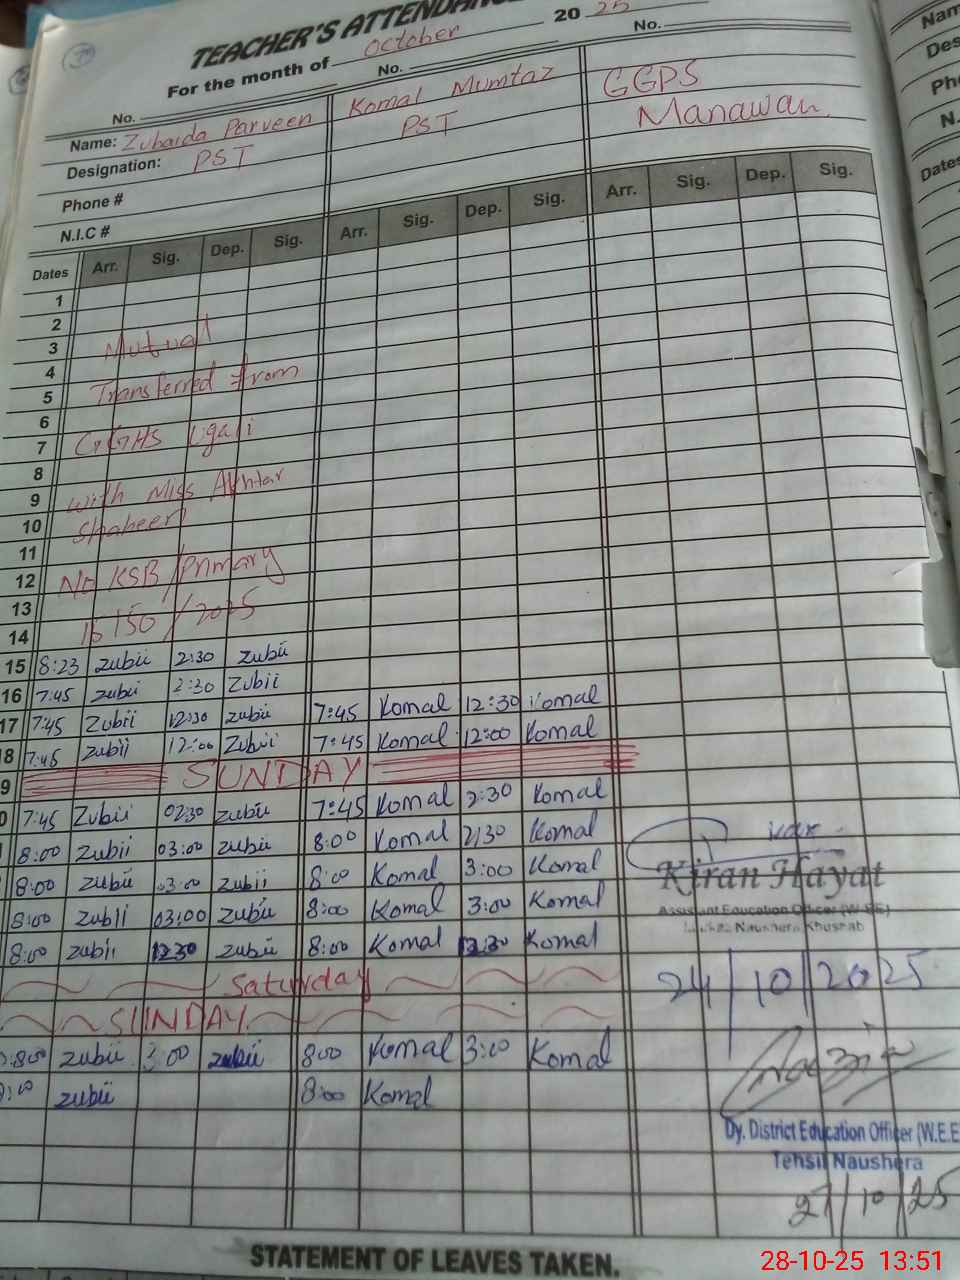 TEACHER'S ATTENDANC
For the month of October 2025
No. No. No.
Name: Zubaida Parveen Komal Mumtaz GGPS
Designation: PST PST Manawan
Phone #
N.I.C #
Dates Arr. Sig. Dep. Sig. Arr. Sig. Dep. Sig. Arr. Sig. Dep. Sig.
1
2
3 Mutual
4
5 Transferred from
6
7 GGHS Ugali
8
9 with Miss Akhtar
10 Shaheen
11
12 No KSB/Primary
13
14 16150/2025
15 8:23 zubii 2:30 zubii
16 7:45 zubii 2:30 Zubii
17 7:45 Zubii 12:30 zubii 7:45 Komal 12:30 Komal
8 7:45 zubii 12:00 Zubii 7:45 Komal 12:00 Komal
9 SUNDAY
0 7:45 Zubii 02:30 zubii 7:45 Komal 2:30 Komal
8:00 zubii 03:00 zubii 8:00 Komal 2:30 Komal
8:00 zubii 03:00 zubii 8:00 Komal 3:00 Komal
Kiran Hayat
8:00 zubii 03:00 zubii 8:00 Komal 3:00 Komal
Assistant Education Officer (W-EE)
Naushera Khushab
8:00 zubii 12:30 zubii 8:00 Komal 12:30 Komal
Saturday
24/10/2025
SUNDAY
:800 zubii 3:00 zubii 800 Komal 3:00 Komal
zubii 8:00 Komal
Dy. District Education Officer (W.E.E
Tehsil Naushera
27/10/25
STATEMENT OF LEAVES TAKEN.
28-10-25 13:51
Nam
Des
Pho
N.
Dates